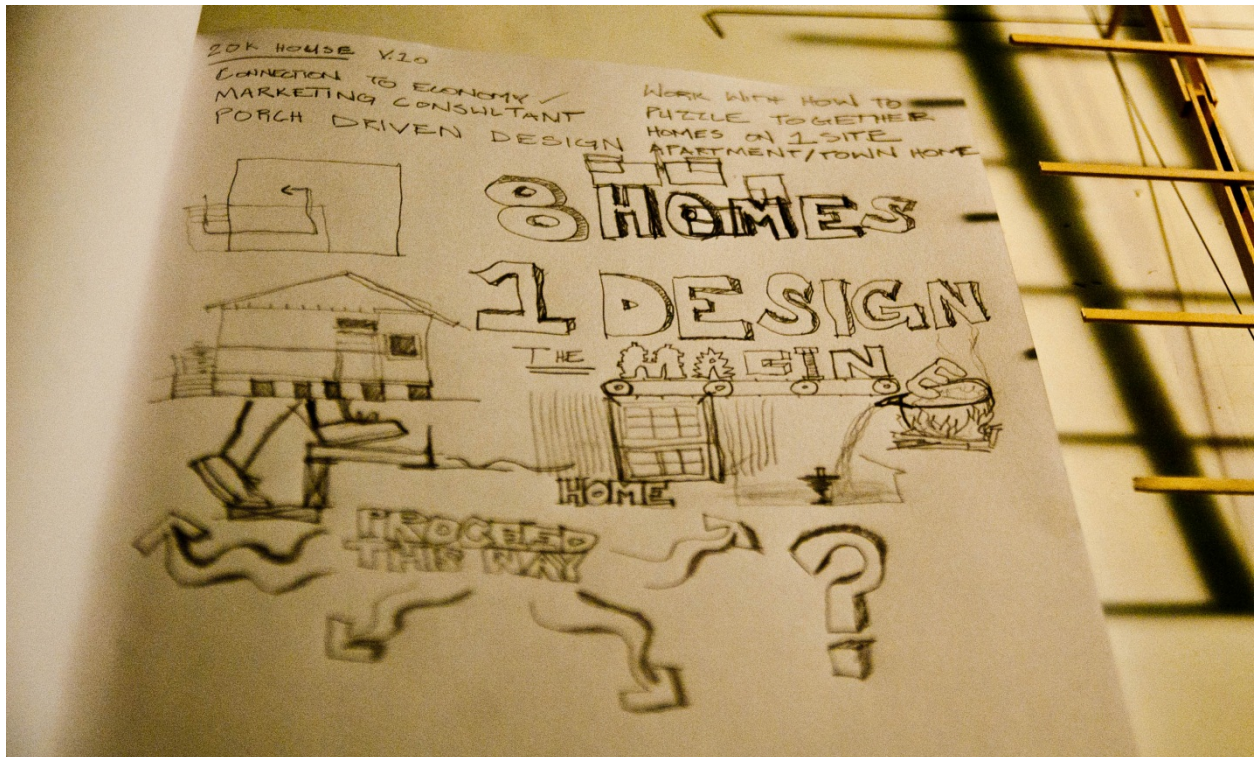 20K HOUSE V.10
CONNECTION TO ECONOMY /
MARKETING CONSULTANT
PORCH DRIVEN DESIGN
WORK WITH HOW TO
PUZZLE TOGETHER
HOMES ON 1 SITE
APARTMENT/TOWN HOME
8 HOMES
1 DESIGN
THE
HOME
PROCEED
THIS WAY
?